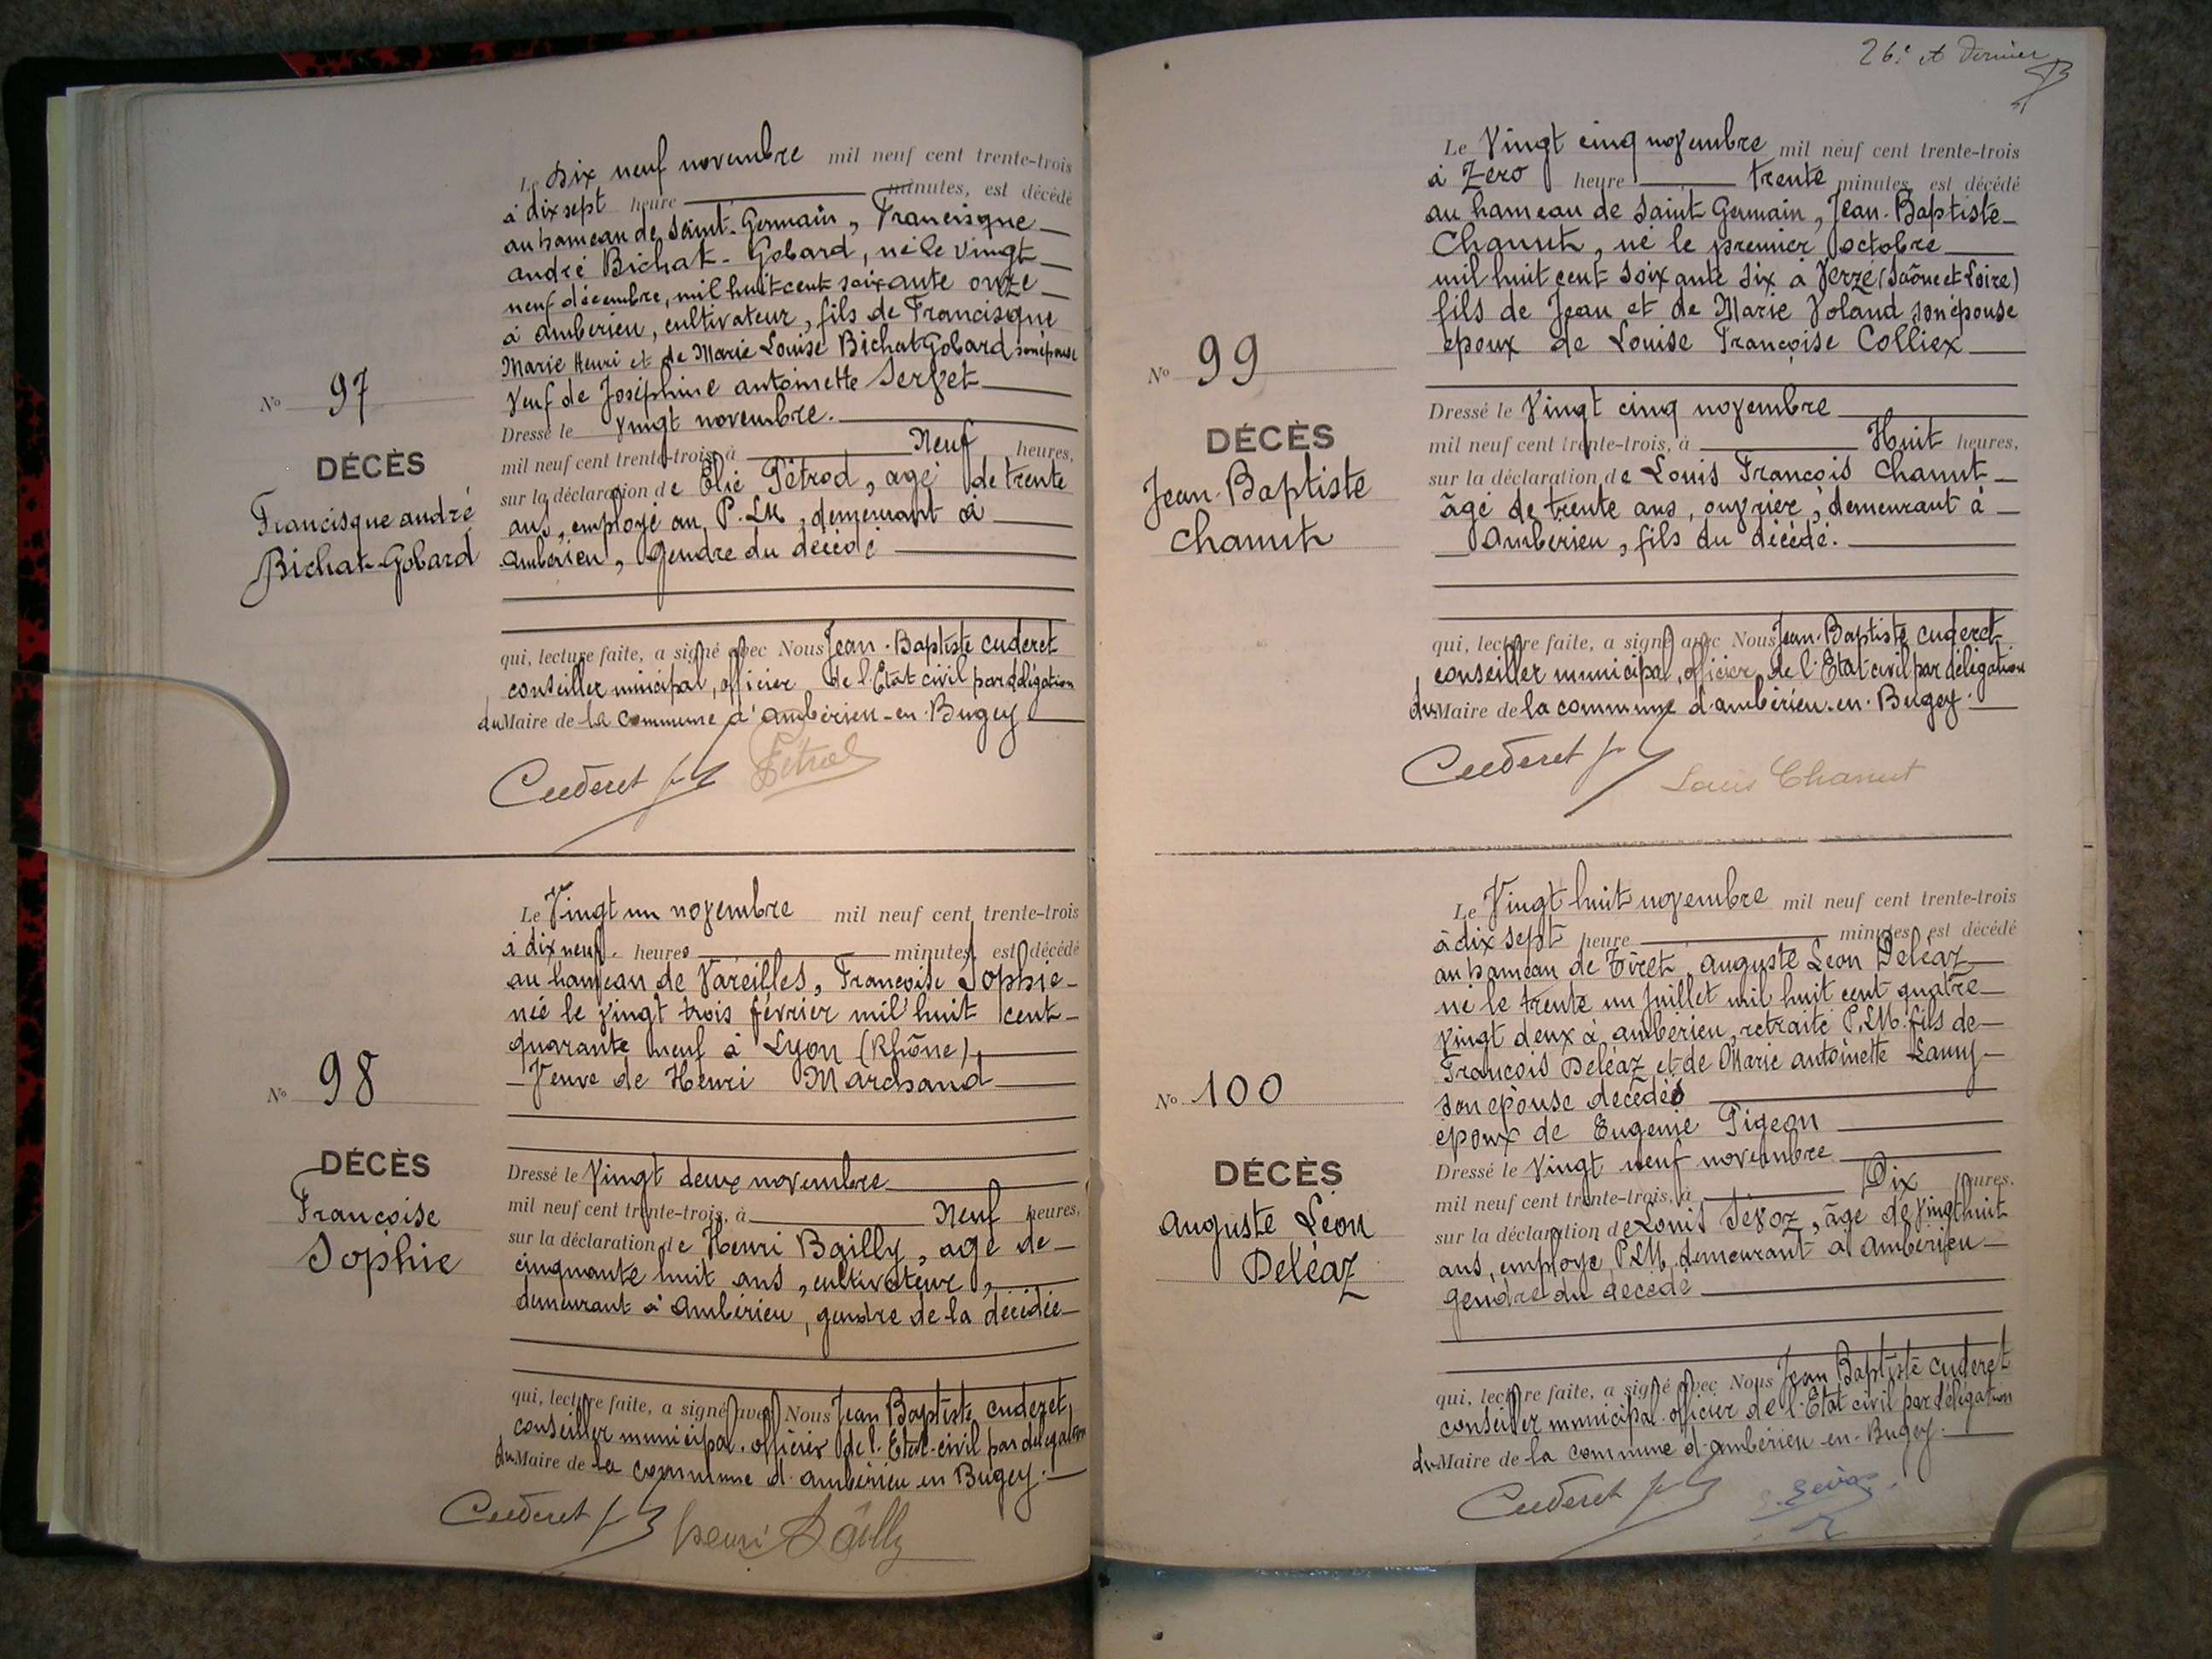 Le Dix neuf novembre mil neuf cent trente-trois
à dix sept heure minutes, est décédé
au hameau de Saint-Germain, Francisque
andré Bichat-Gobard, né le vingt
neuf décembre, mil huit cent soixante onze
à ambérieu, cultivateur, fils de Francisque
Marie Henri et de Marie Louise Bichat Gobard son épouse
Veuf de Joséphine antoinette Servet
Dressé le vingt novembre.
mil neuf cent trente-trois, à Neuf heures,
sur la déclaration de Elie Pétrod, agé de trente
ans, employé au P.LM, demeurant à
ambérieu, gendre du décédé
No 97
DÉCÈS
Francisque andré
Bichat-Gobard
qui, lecture faite, a signé avec Nous Jean-Baptiste cuderet
conseiller minicipal, officier de l'Etat civil par déligation
du Maire de la commune d'ambérieu-en-Bugey
Cuderet Pétrod
Le Vingt un novembre mil neuf cent trente-trois
à dix neuf heures minutes, est décédé
au hameau de Vareilles, Françoise Sophie
née le vingt trois février mil huit cent
quarante neuf à Lyon (Rhône),
Veuve de Henri Marchand
No 98
DÉCÈS
Françoise
Sophie
Dressé le Vingt deux novembre
mil neuf cent trente-trois, à Neuf heures,
sur la déclaration de Henri Bailly, agé de
cinquante huit ans, cultivateur,
demeurant à Ambérieu, gendre de la décédée
qui, lecture faite, a signé avec Nous Jean Baptiste cuderet,
conseiller municipal, officier de l'Etat-civil par délégation
du Maire de la commune d'ambérieu en Bugey.
Cuderet henri Bailly
26e et Dernier
Le Vingt cinq novembre mil neuf cent trente-trois
à Zero heure trente minutes, est décédé
au hameau de Saint Germain, Jean-Baptiste
Chanut, né le premier octobre
mil huit cent soixante six à Verzé (Saône et Loire)
fils de Jean et de Marie Voland son épouse
époux de Louise Françoise Colliex
No 99
DÉCÈS
Jean-Baptiste
Chanut
Dressé le Vingt cinq novembre
mil neuf cent trente-trois, à Huit heures,
sur la déclaration de Louis François Chanut
âgé de trente ans, ouvrier, demeurant à
Ambérieu, fils du décédé.
qui, lecture faite, a signé avec Nous Jean-Baptiste cuderet
conseiller municipal, officier de l'Etat-civil par délégation
du Maire de la commune d'ambérieu-en-Bugey.
Cuderet Louis Chanut
Le Vingt huit novembre mil neuf cent trente-trois
à dix sept heure minutes, est décédé
au hameau de Tiret, auguste Léon Deléaz
né le trente un juillet mil huit cent quatre
vingt deux à ambérieu, retraité P.LM. fils de
François Deléaz et de Marie antoinette
son épouse décédés
époux de Eugenie Pigeon
No 100
DÉCÈS
Auguste Léon
Deléaz
Dressé le Vingt neuf novembre
mil neuf cent trente-trois, à Dix heures.
sur la déclaration de Louis Sévoz, âgé de vingt huit
ans, employé P.LM, demeurant à Ambérieu
gendre du décédé
qui, lecture faite, a signé avec Nous Jean Baptiste cuderet
conseiller municipal, officier de l'Etat civil par délégation
du Maire de la commune d'ambérieu-en-Bugey.
Cuderet Sévoz